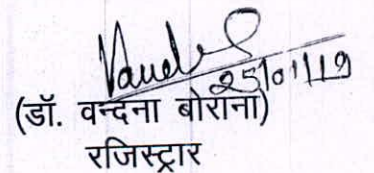 25/01/19
(डॉ. वन्दना बोराना)
रजिस्ट्रार